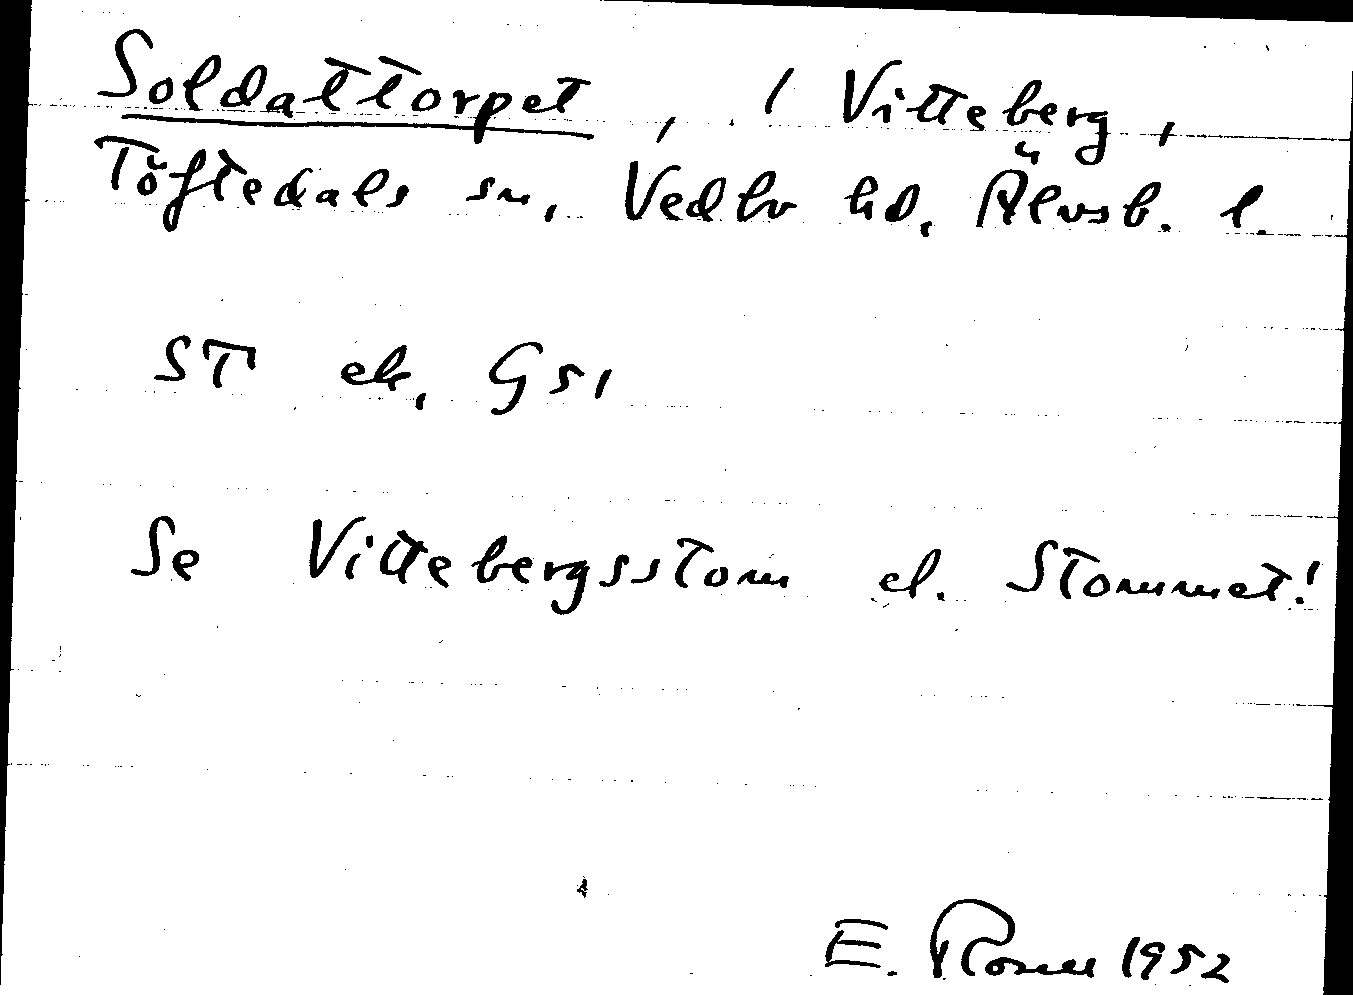 Soldattorpet, 1 Vitteberg,
Töftedals sn, Vedbo hd, Älvsb. l.
ST ek. G51
Se Vittebergsstom el. Stommet!
E. 1952